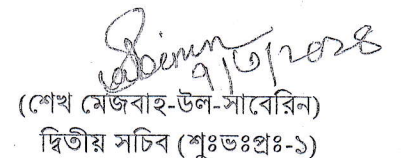 ৭/৩/২০২৪
(শেখ মেজবাহ-উল-সাবেরিন)
দ্বিতীয় সচিব (শুঃভঃপ্রঃ-১)